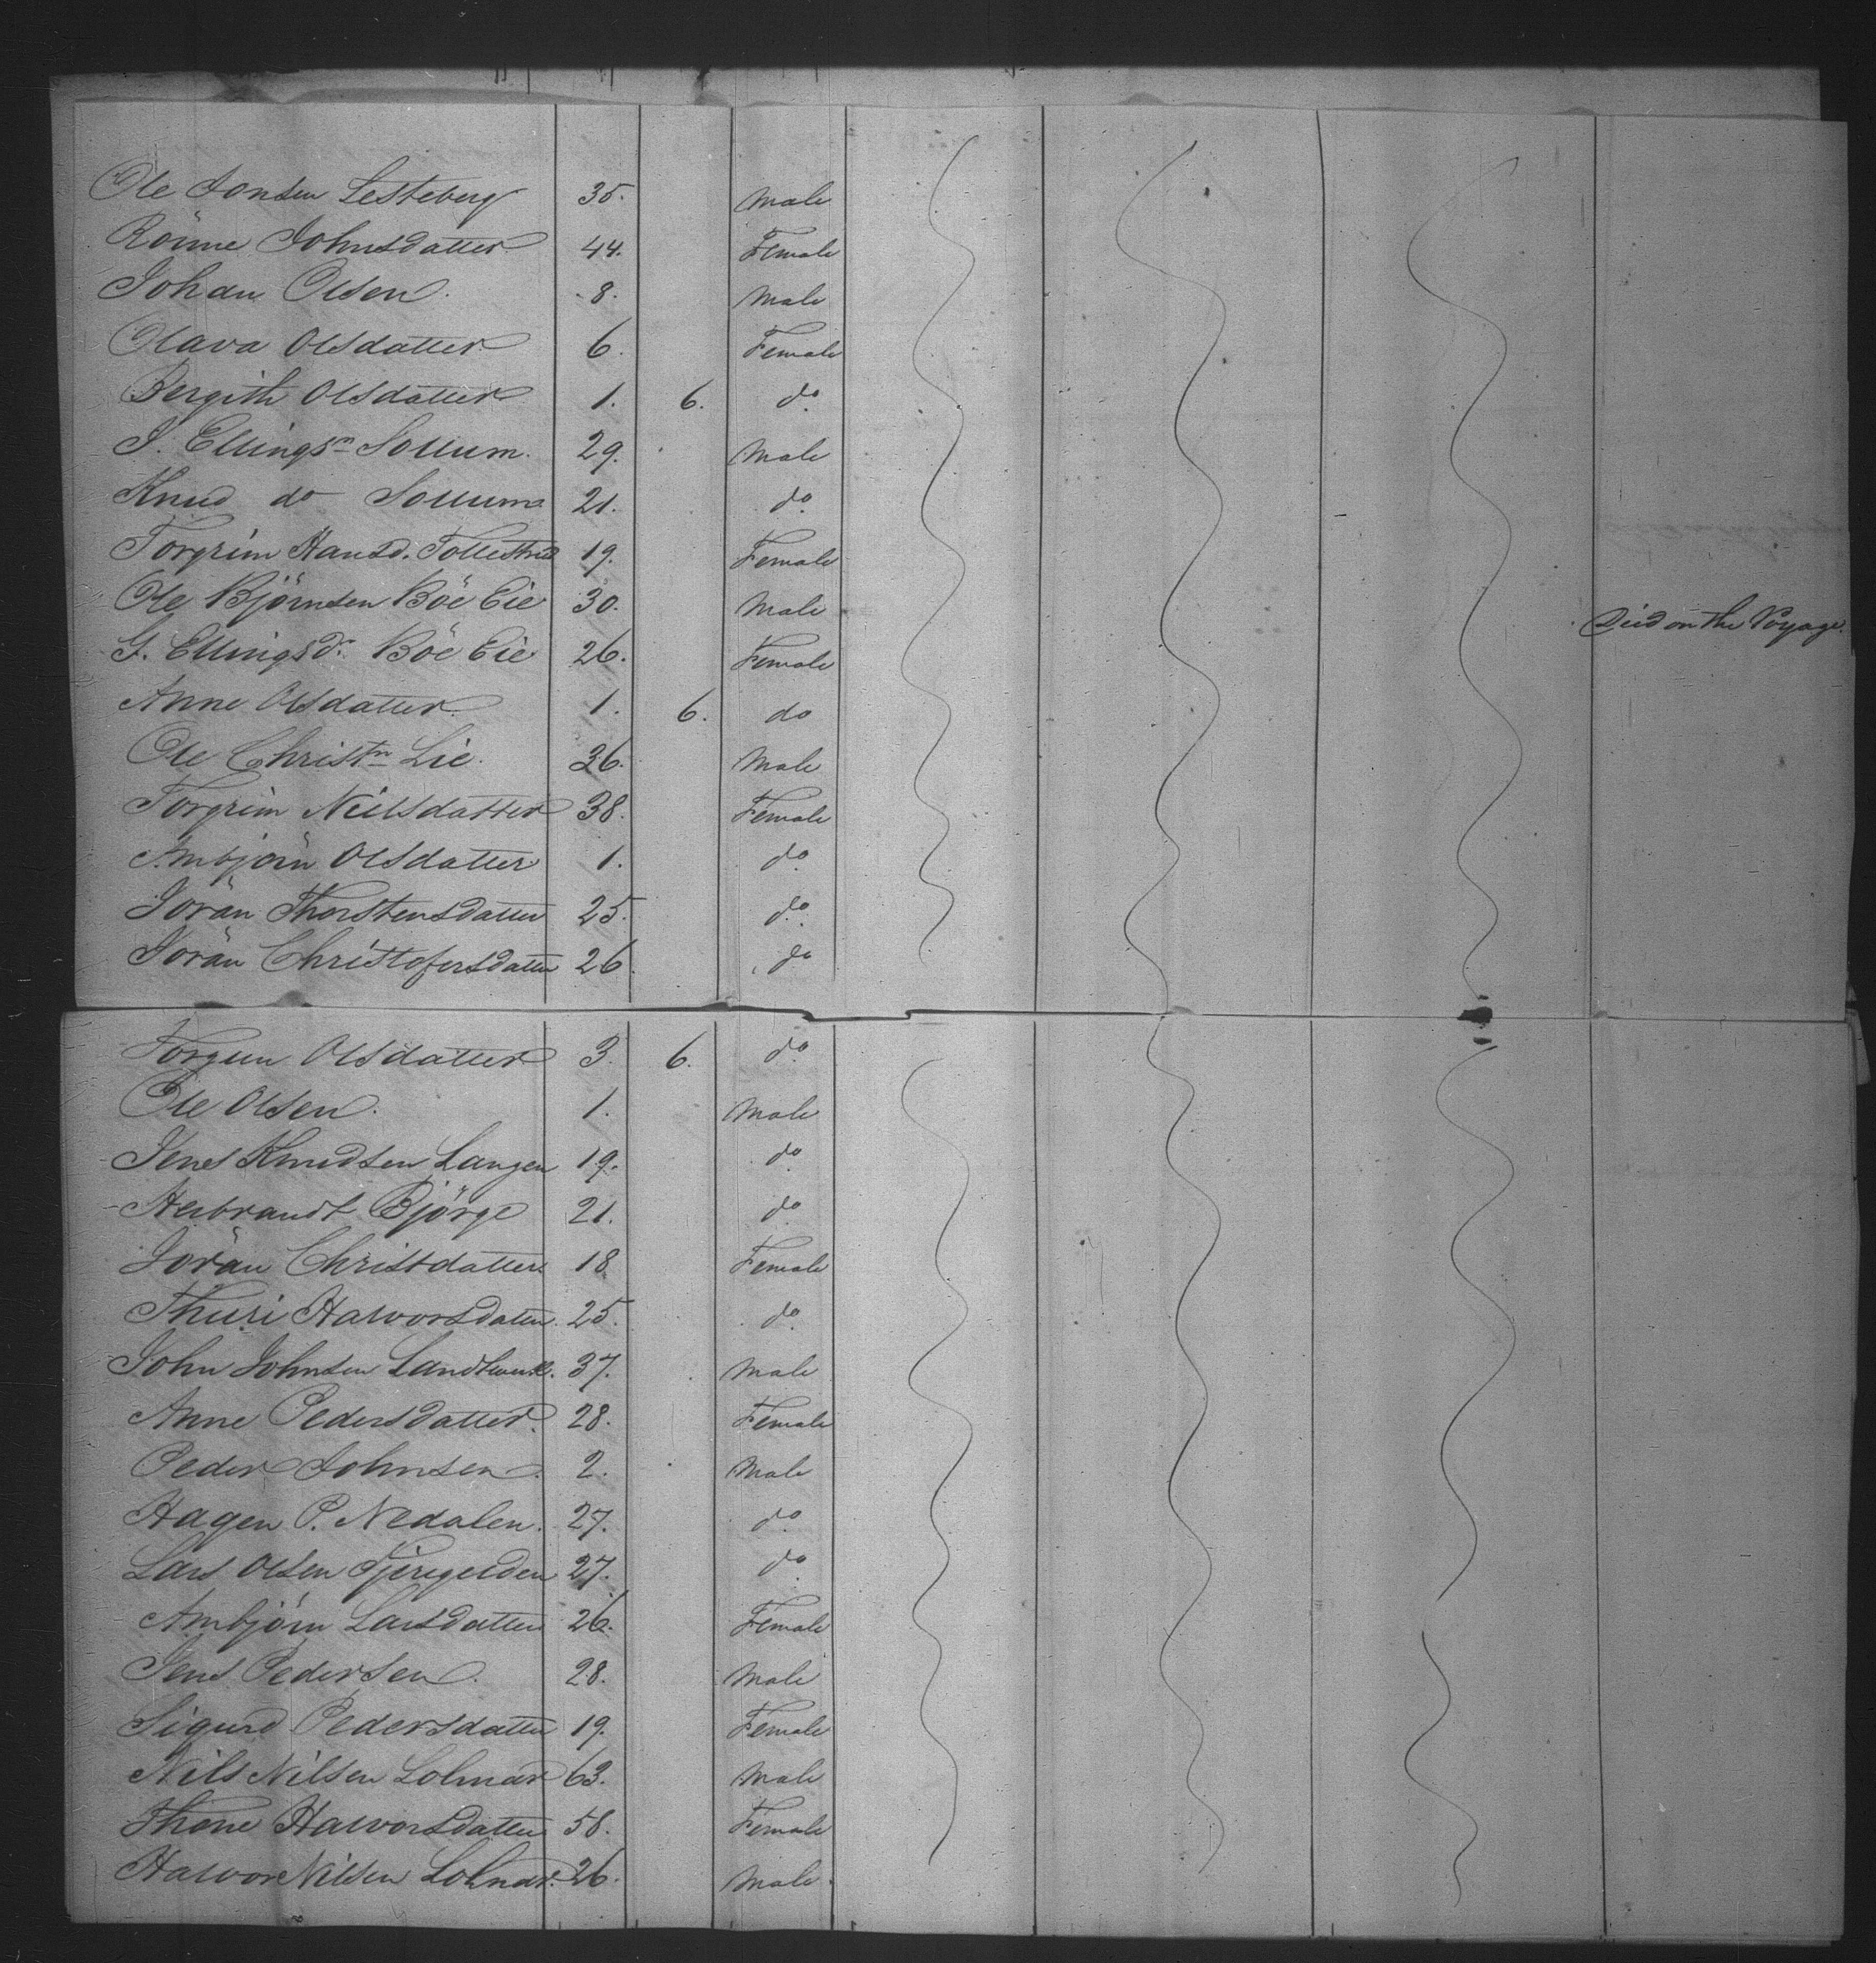 Ole Jonsen Lesteberg 35. Male
Rönne Johnsdatter 44. Female
Johan Olsen. 8. Male
Olava Olsdatter 6. Female
Bergith Olsdatter 1. 6. do
J. Ellingsn Sollum. 29. Male
Knud do Sollum 21. do
Torgrim Hansd. 19. Female
Ole Björnsen Böe Eie 30. Male Died on the Voyage.
G. Ellingsdr. Böe Eie 26. Female
Anne Olsdatter. 1. 6. do
Ole Christn Lie. 36. Male
Torgrim Neilsdatter 38. Female
Ambjörn Olsdatter 1. do
Jorän Thorstensdatter 25. do
Jorän Christofersdatter 26. do
Torgun Olsdatter 3. 6. do
Ole Olsen. 1. Male
Jens Knudsen Langen 19. do
Herbrandt Björge 21. do
Jorän Christdatter 18 Female
Thuri Halvorsdatter. 25. do
John Johnsen 37. Male
Anne Pedersdatter. 28. Female
Peder Johnsen. 2. Male
Hagen P. Nedalen. 27. do
Lars Olsen 27. do
Ambjörn Larsdatter 26. Female
Jens Pedersen. 28. Male
Sigurd Pedersdatter 19. Female
Nils Nilsen Lolmar 63. Male
Thone Halvorsdatter 58. Female
Halvor Nilsen Lolmar. 26. Male